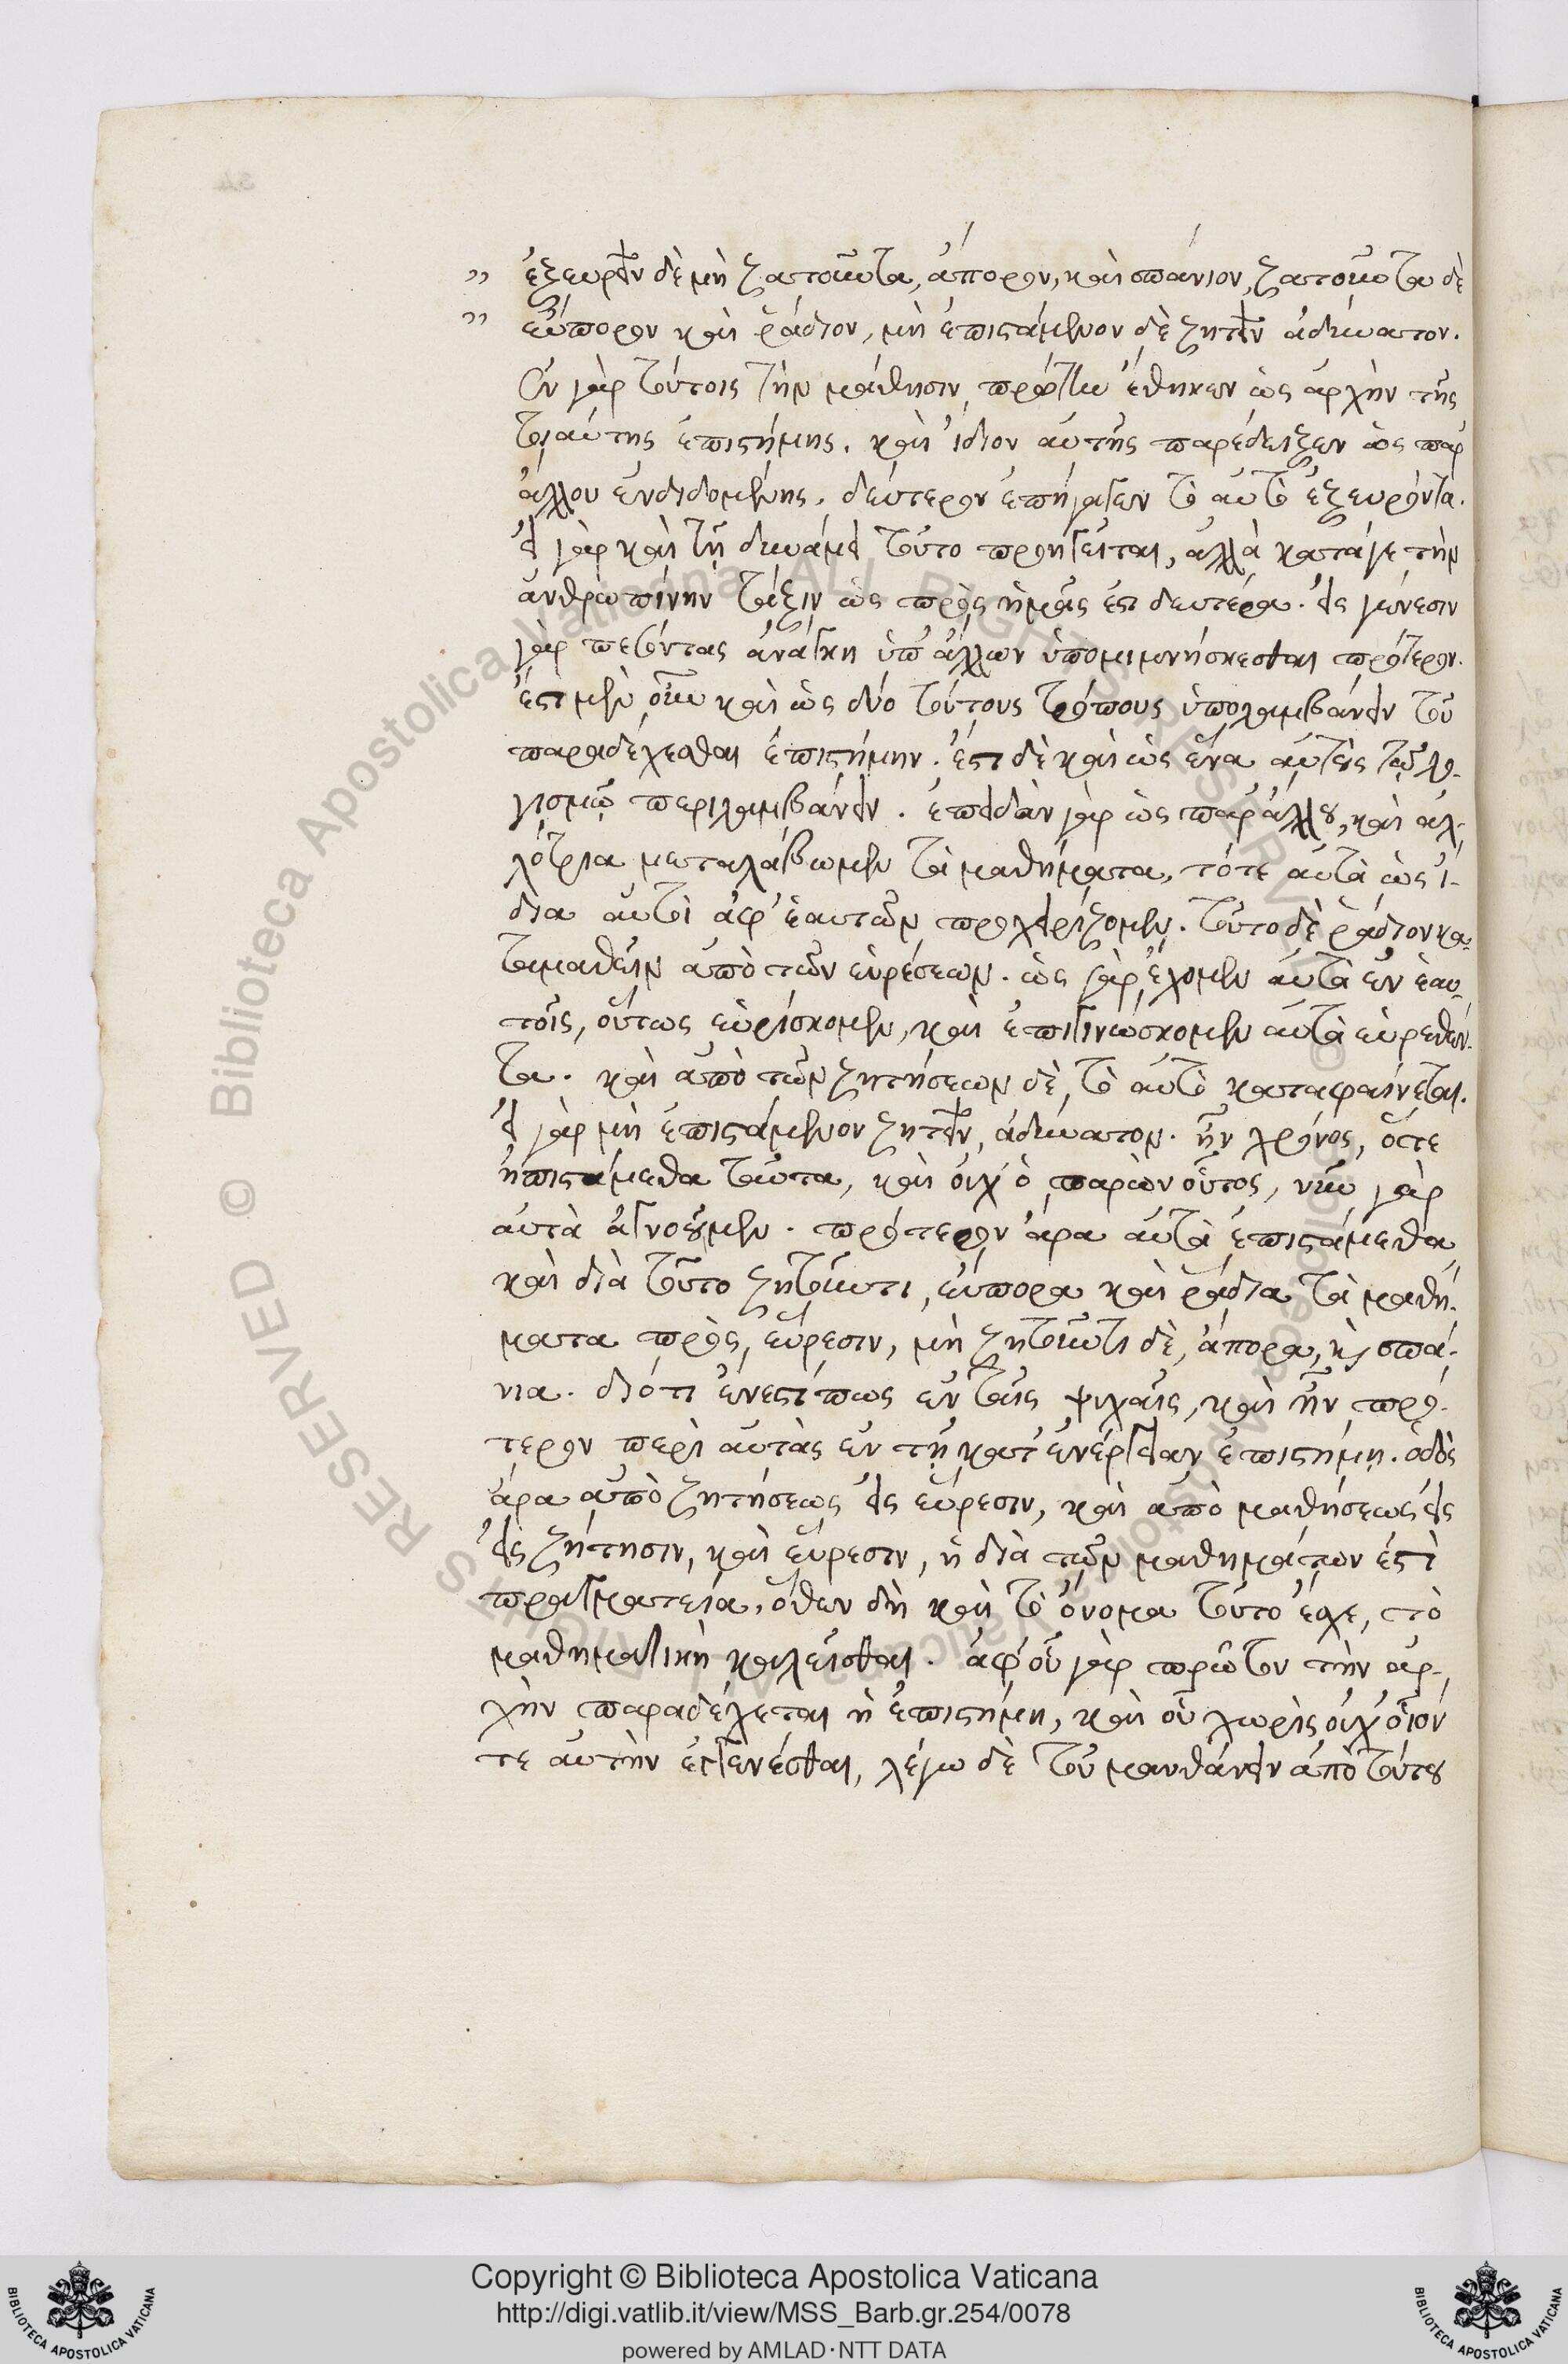 ” ἐξευρεῖν δὲ μὴ ζατοῦντα, ἄπορον, καὶ σπάνιον, ζατοῦντα δὲ
” εὔπορον καὶ ῥάδιον, μὴ ἐπιστάμενον δὲ ζητεῖν ἀδύνατον.
Ἐν γὰρ τούτοις τὴν μάθησιν πρώτην ἔθηκεν ὡς ἀρχὴν τῆς
τοιαύτης ἐπιστήμης. καὶ ἴδιον αὐτῆς παρέδειξεν ὡς παρ
ἄλλου ἐνδιδομένης. δεύτερον ἐπήγαγεν τὸ αὐτὸ ἐξευρόντα.
εἰ γὰρ καὶ τῇ δυνάμει τοῦτο προηγεῖται, ἀλλὰ κατά γε τὴν
ἀνθρωπίνην τάξιν ὡς πρὸς ἡμᾶς ἐστι δευτέρα. εἰς γένεσιν
γὰρ πεσόντας ἀνάγκη ὑπ' ἄλλων ὑπομιμνήσκεσθαι πρότερον.
ἔστι μὲν οὖν καὶ ὡς δύο τούτους τρόπους ὑπολαμβάνειν τοῦ
παραδέχεσθαι ἐπιστήμην. ἔστι δὲ καὶ ὡς ἕνα αὐτοὺς τῷ λο-
γισμῷ περιλαμβάνειν. ἐπειδὰν γὰρ ὡς παρ' ἄλλου, καὶ ἀλ-
λότρια μεταλάβωμεν τὰ μαθήματα, τότε αὐτὰ ὡς ἴ-
δια αὐτοὶ ἀφ' ἑαυτῶν προχειρίζομεν. τοῦτο δὲ ῥάδιον κα-
ταμαθεῖν ἀπὸ τῶν εὑρέσεων. ὡς γὰρ ἔχομεν αὐτὰ ἐν ἑαυ-
τοῖς, οὕτως εὑρίσκομεν, καὶ ἐπιγινώσκομεν αὐτὰ εὑρεθέν-
τα. καὶ ἀπὸ τῶν ζητήσεων δὲ τὸ αὐτὸ καταφαίνεται.
εἰ γὰρ μὴ ἐπιστάμενον ζητεῖν, ἀδύνατον. ἦν χρόνος, ὅτε
ἠπιστάμεθα ταῦτα, καὶ οὐχ ὁ παρὼν οὗτος, νῦν γὰρ
αὐτὰ ἀγνοοῦμεν. πρότερον ἄρα αὐτὰ ἐπιστάμεθα,
καὶ διὰ τοῦτο ζητοῦντι, εὔπορα καὶ ῥάδια τὰ μαθή-
ματα πρὸς εὕρεσιν, μὴ ζητοῦντι δὲ, ἄπορα, κ σπά-
νια. διότι ἔνεστί πως ἐν ταῖς ψυχαῖς, καὶ ἦν πρό-
τερον περὶ αὐτὰς ἐν τῇ κατ' ἐνέργειαν ἐπιστήμῃ. ὁδὸς
ἄρα ἀπὸ ζητήσεως εἰς εὕρεσιν, καὶ ἀπὸ μαθήσεως εἰς
εἰς ζήτησιν, καὶ εὕρεσιν, ἡ διὰ τῶν μαθημάτων ἐστὶ
πραγματεία, ὅθεν δὴ καὶ τὸ ὄνομα τοῦτο ἔσχε, τὸ
μαθηματικὴ καλεῖσθαι. ἀφ' οὗ γὰρ πρῶτον τὴν ἀρ-
χὴν παραδέχεται ἡ ἐπιστήμη, καὶ οὗ χωρὶς οὐχ οἷόν
τε αὐτὴν ἐγγενέσθαι, λέγω δὲ τοῦ μανθάνειν ἀπὸ τούτου
© Biblioteca Apostolica Vaticana ALL RIGHTS RESERVED
Copyright © Biblioteca Apostolica Vaticana
http://digi.vatlib.it/view/MSS_Barb.gr.254/0078
powered by AMLAD·NTT DATA
BIBLIOTECA APOSTOLICA VATICANA
BIBLIOTECA APOSTOLICA VATICANA